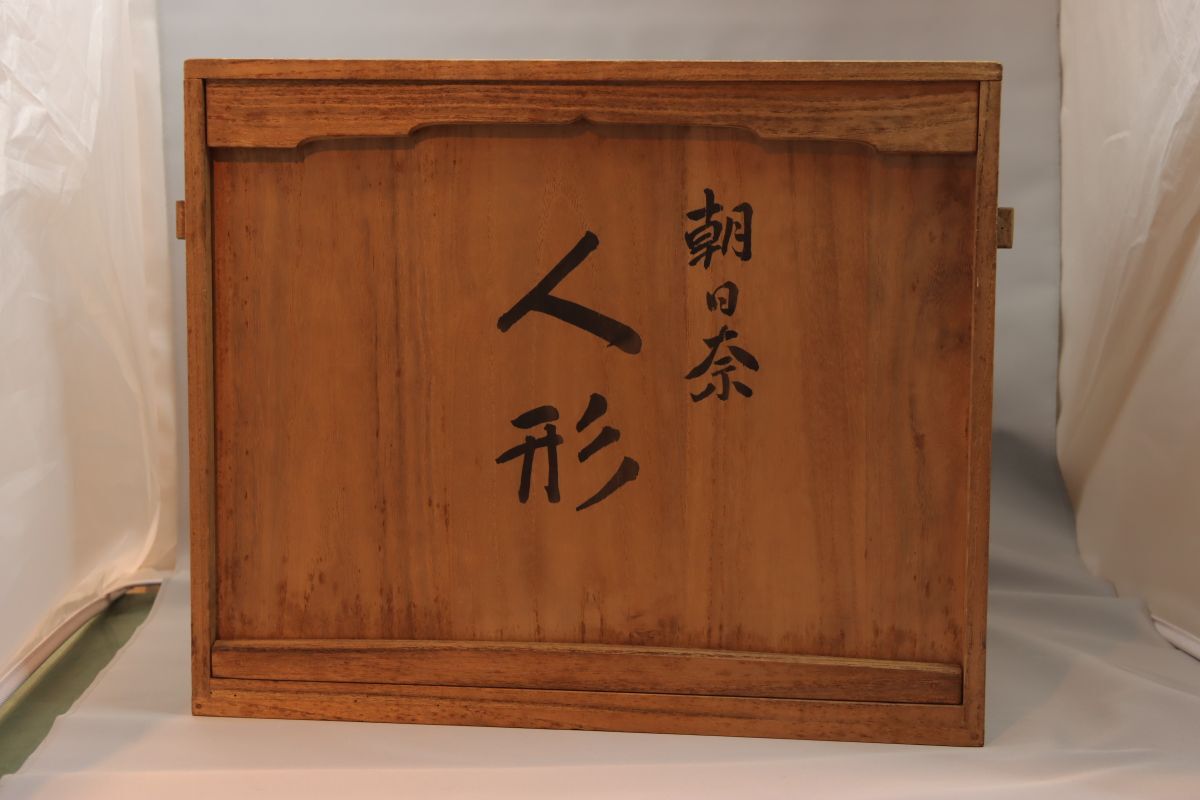 朝日奈
人形